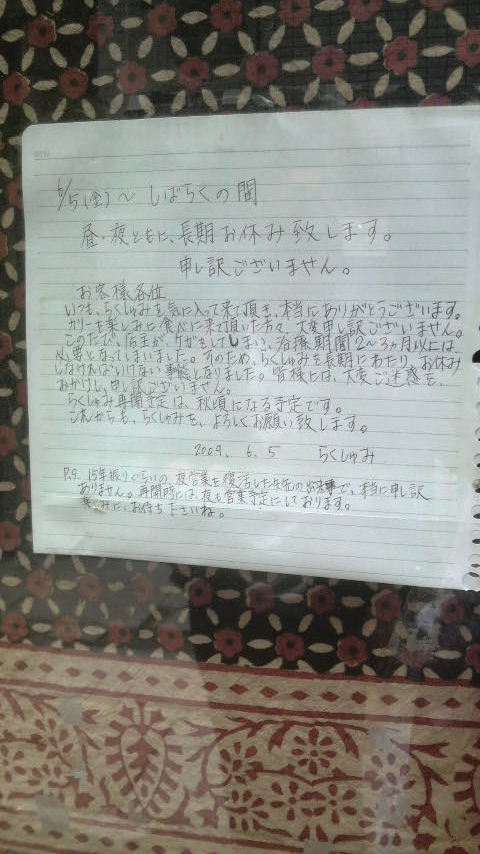 6/5(金)〜しばらくの間
昼・夜ともに、長期お休み致します。
申し訳ございません。
お客様各位
いつも、らくしゅみを気に入って来て頂き、本当にありがとうございます。
カリーを楽しみに食べに来て頂いた方々、大変申し訳ございません。
このたび、店主が、ケガをしてしまい、治療期間2〜3ヵ月以上は、
必要となってしまいました。そのため、らくしゅみを長期にわたり、お休み
しなければいけない事態となりました。皆様には、大変ご迷惑を、
おかけし、申し訳ございません。
らくしゅみ再開予定は、秋頃になる予定です。
これからも、らくしゅみを、よろしくお願い致します。
2009. 6. 5 らくしゅみ
P.S. 15年振りぐらいの、夜営業を復活した矢先の出来事で、本当に申し訳
ありません。再開時には、夜も営業予定にしております。
楽しみに、お待ち下さいね。